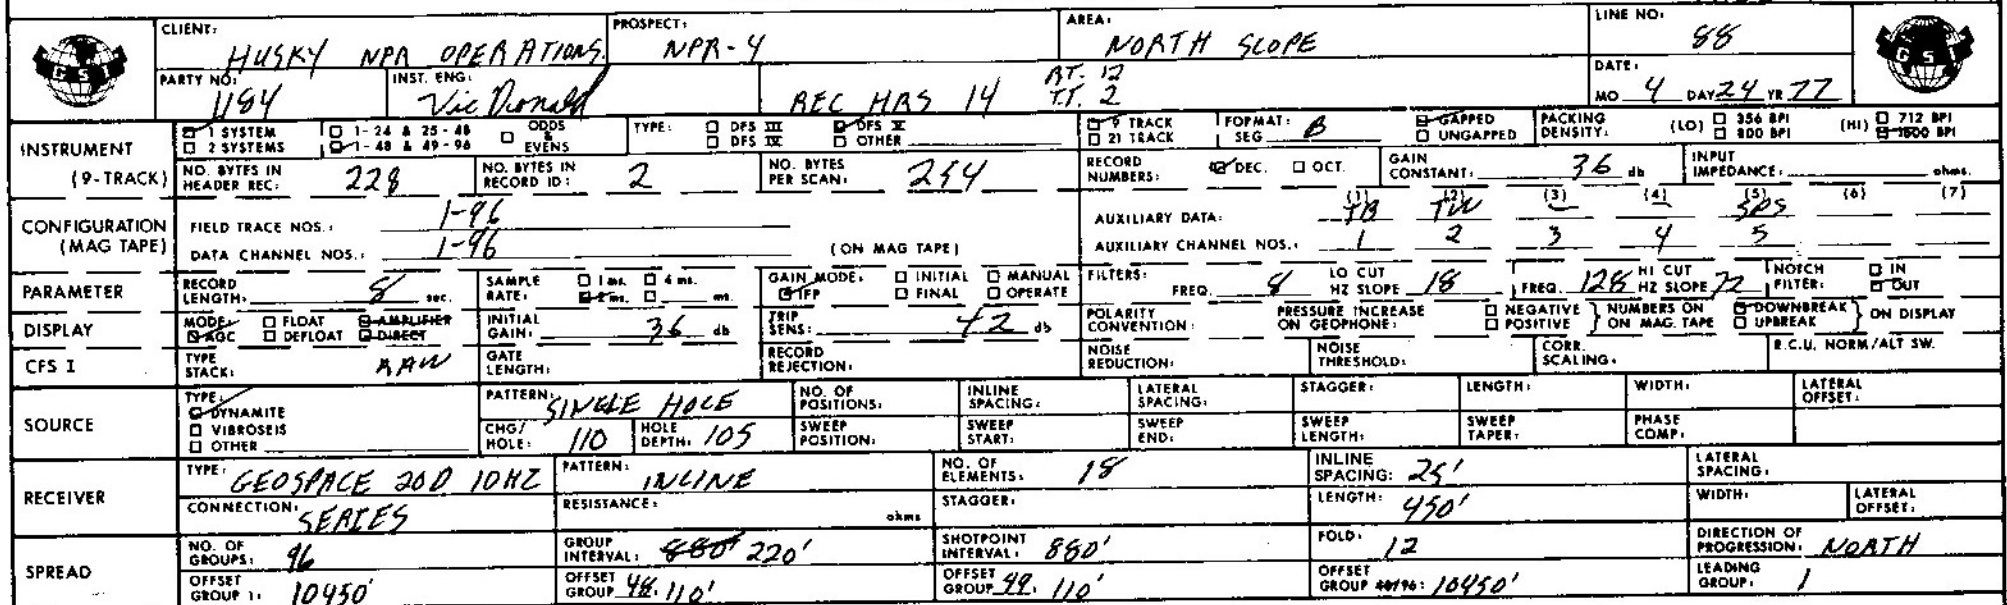 CLIENT: HUSKY NPR OPERATIONS. PROSPECT: NPR-4 AREA: NORTH SLOPE LINE NO: 88
GSI
PARTY NO: 1184 INST. ENG: Vic Donald REC HRS 14 RT. 12 T.T. 2 DATE: MO 4 DAY 24 YR 77
GSI
INSTRUMENT (9-TRACK) 1 SYSTEM 2 SYSTEMS 1-24 & 25-48 1-48 & 49-96 ODDS & EVENS TYPE: DFS III DFS IV DFS V OTHER 9 TRACK 21 TRACK FORMAT: SEG B GAPPED UNGAPPED PACKING DENSITY: (LO) 356 BPI 800 BPI (HI) 712 BPI 1600 BPI
NO. BYTES IN HEADER REC: 228 NO. BYTES IN RECORD ID: 2 NO. BYTES PER SCAN: 254 RECORD NUMBERS: DEC. OCT. GAIN CONSTANT: 36 db INPUT IMPEDANCE: ohms.
CONFIGURATION (MAG TAPE) FIELD TRACE NOS.: 1-96 AUXILIARY DATA: (1) TB (2) TW (3) — (4) — (5) SPS (6) (7)
DATA CHANNEL NOS.: 1-96 (ON MAG TAPE) AUXILIARY CHANNEL NOS.: 1 2 3 4 5
PARAMETER RECORD LENGTH: 8 sec. SAMPLE RATE: 1 ms. 4 ms. 2 ms. ms. GAIN MODE: INITIAL MANUAL IFP FINAL OPERATE FILTERS: FREQ. 8 LO CUT HZ SLOPE 18 FREQ. 128 HI CUT HZ SLOPE 72 NOTCH FILTER: IN OUT
DISPLAY MODE: FLOAT AMPLIFIER AGC DEFLOAT DIRECT INITIAL GAIN: 36 db TRIP SENS: 42 db POLARITY CONVENTION: PRESSURE INCREASE ON GEOPHONE: NEGATIVE POSITIVE } NUMBERS ON ON MAG. TAPE DOWNBREAK UPBREAK } ON DISPLAY
CFS I TYPE STACK: RAW GATE LENGTH: RECORD REJECTION: NOISE REDUCTION: NOISE THRESHOLD: CORR. SCALING: R.C.U. NORM/ALT SW.
SOURCE TYPE: DYNAMITE VIBROSEIS OTHER PATTERN: SINGLE HOLE NO. OF POSITIONS: INLINE SPACING: LATERAL SPACING: STAGGER: LENGTH: WIDTH: LATERAL OFFSET:
CHG/HOLE: 110 HOLE DEPTH: 105 SWEEP POSITION: SWEEP START: SWEEP END: SWEEP LENGTH: SWEEP TAPER: PHASE COMP:
RECEIVER TYPE: GEOSPACE 20D 10HZ PATTERN: INLINE NO. OF ELEMENTS: 18 INLINE SPACING: 25' LATERAL SPACING:
CONNECTION: SERIES RESISTANCE: ohms STAGGER: LENGTH: 450' WIDTH: LATERAL OFFSET:
SPREAD NO. OF GROUPS: 96 GROUP INTERVAL: 880' 220' SHOTPOINT INTERVAL: 880' FOLD: 12 DIRECTION OF PROGRESSION: NORTH
OFFSET GROUP 1: 10450' OFFSET GROUP 48: 110' OFFSET GROUP 49: 110' OFFSET GROUP 48/96: 10450' LEADING GROUP: 1